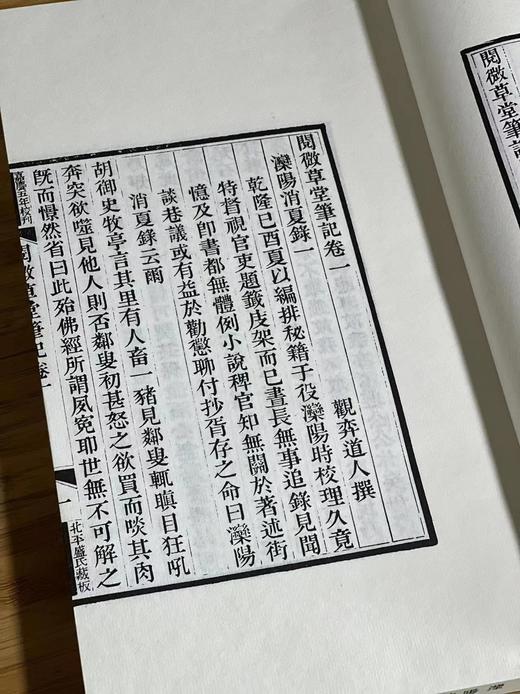 閱微草堂筆記
閱微草堂筆記卷一
灤陽消夏錄一
觀弈道人撰
乾隆己酉夏以編排秘籍于役灤陽時校理久竟
特督視官吏題籤庋架而已晝長無事追錄見聞
憶及即書都無體例小說稗官知無關於著述街
談巷議或有益於勸懲聊付抄胥存之命曰灤陽
消夏錄云爾
胡御史牧亭言其里有人畜一豬見鄰叟輒瞋目狂吼
奔突欲噬見他人則否鄰叟初甚怒之欲買而啖其肉
既而憬然省曰此殆佛經所謂夙冤耶世無不可解之
嘉慶五年校刊
閱微草堂筆記卷一
一
北平盛氏藏板